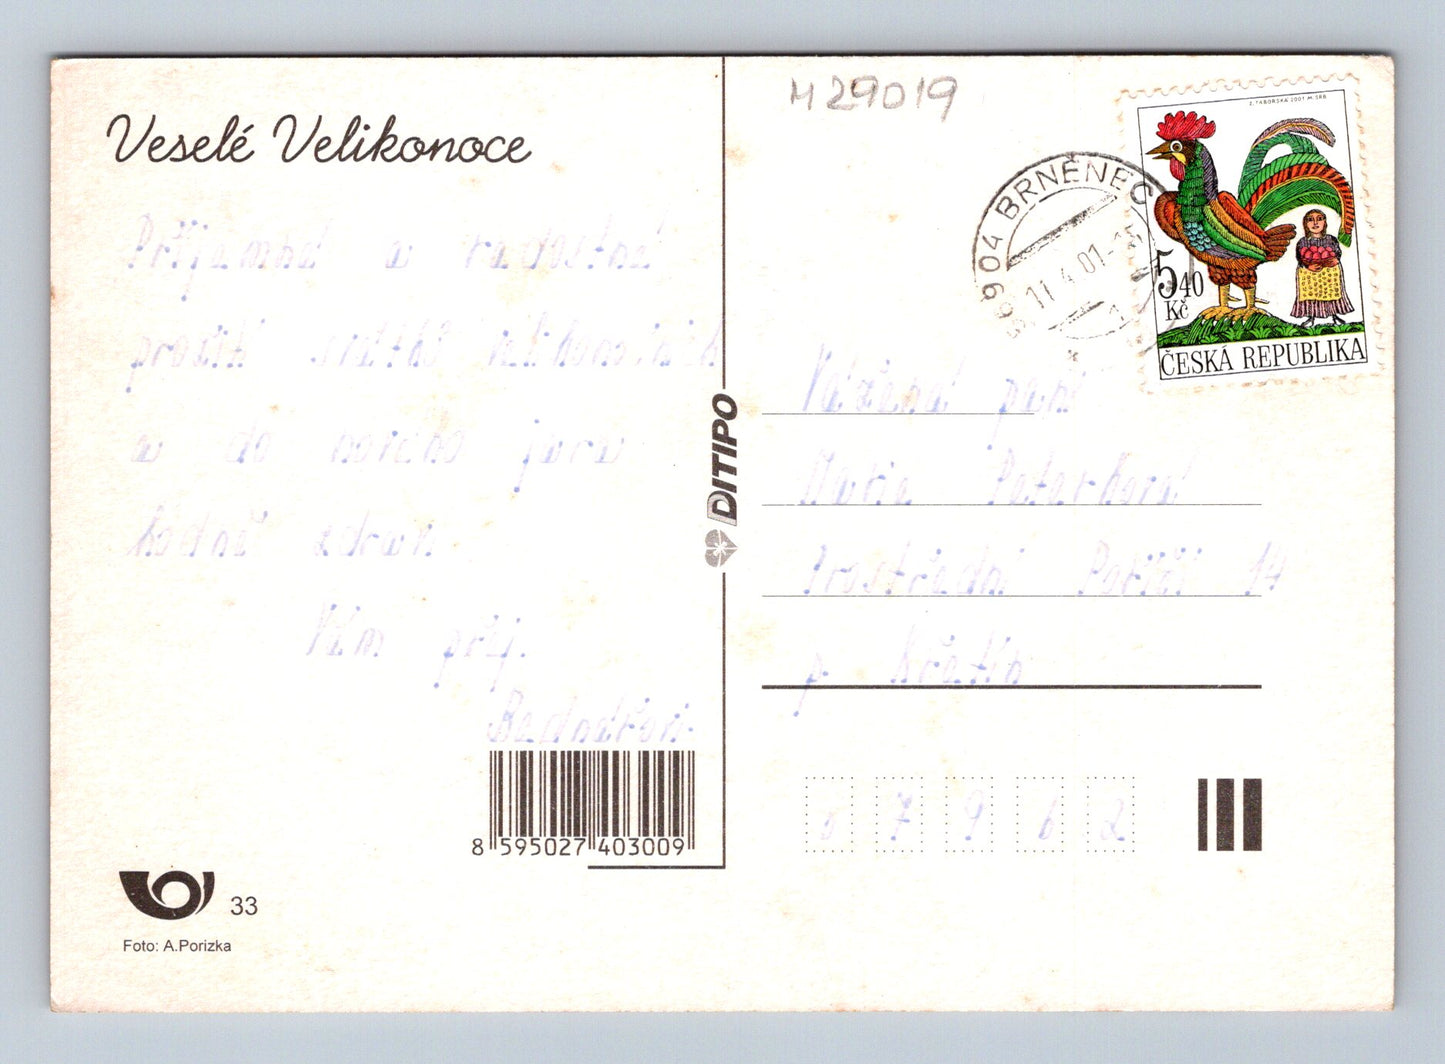 Veselé Velikonoce
Příjemné a radostné
prožití svátků velikonočních
a do nového jara
hodně zdraví
Vám přej.
Bednářovi.
8 595027 403009
33
Foto: A.Porizka
DITIPO
M29019
Z. TÁBORSKÁ 2001 M. SRB
5,40
Kč
ČESKÁ REPUBLIKA
569 04 BRNĚNEC
11.4.01-15
Vážená paní
Marie Peterková
Prostřední Poříčí 14
p. Křetín
67962